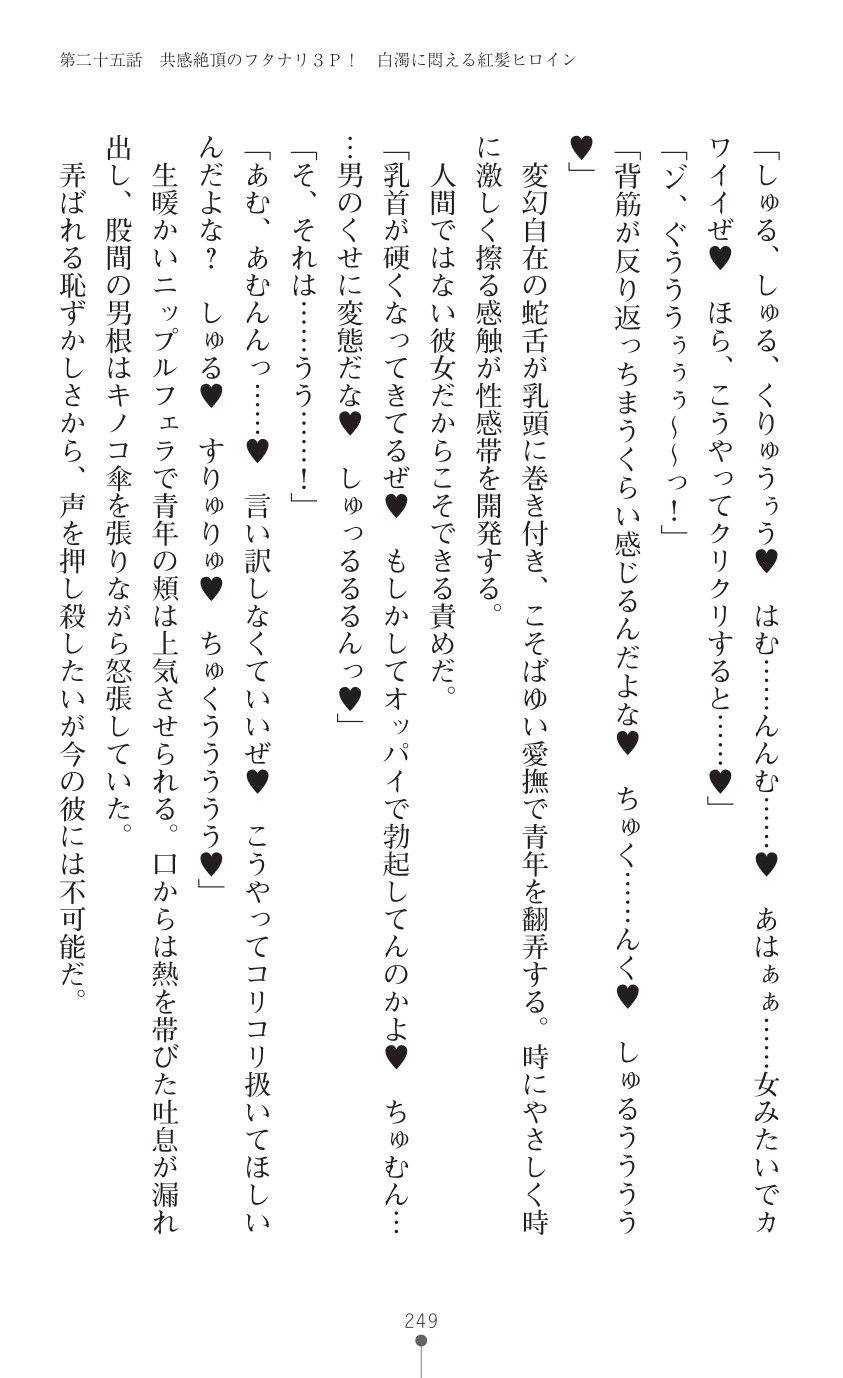 第二十五話　共感絶頂のフタナリ３Ｐ！　白濁に悶える紅髪ヒロイン
「しゅる、しゅる、くりゅうぅう♥　はむ……んんむ……♥　あはぁぁ……女みたいでカ
ワイイぜ♥　ほら、こうやってクリクリすると……♥」
「ゾ、ぐうううぅぅぅ～～っ！」
「背筋が反り返っちまうくらい感じるんだよな♥　ちゅく……んく♥　しゅるうううう
♥」
　変幻自在の蛇舌が乳頭に巻き付き、こそばゆい愛撫で青年を翻弄する。時にやさしく時
に激しく擦る感触が性感帯を開発する。
　人間ではない彼女だからこそできる責めだ。
「乳首が硬くなってきてるぜ♥　もしかしてオッパイで勃起してんのかよ♥　ちゅむん…
…男のくせに変態だな♥　しゅっるるるんっ♥」
「そ、それは……うう……！」
「あむ、あむんんっ……♥　言い訳しなくていいぜ♥　こうやってコリコリ扱いてほしい
んだよな？　しゅる♥　すりゅりゅ♥　ちゅくううううう♥」
　生暖かいニップルフェラで青年の頬は上気させられる。口からは熱を帯びた吐息が漏れ
出し、股間の男根はキノコ傘を張りながら怒張していた。
　弄ばれる恥ずかしさから、声を押し殺したいが今の彼には不可能だ。
249